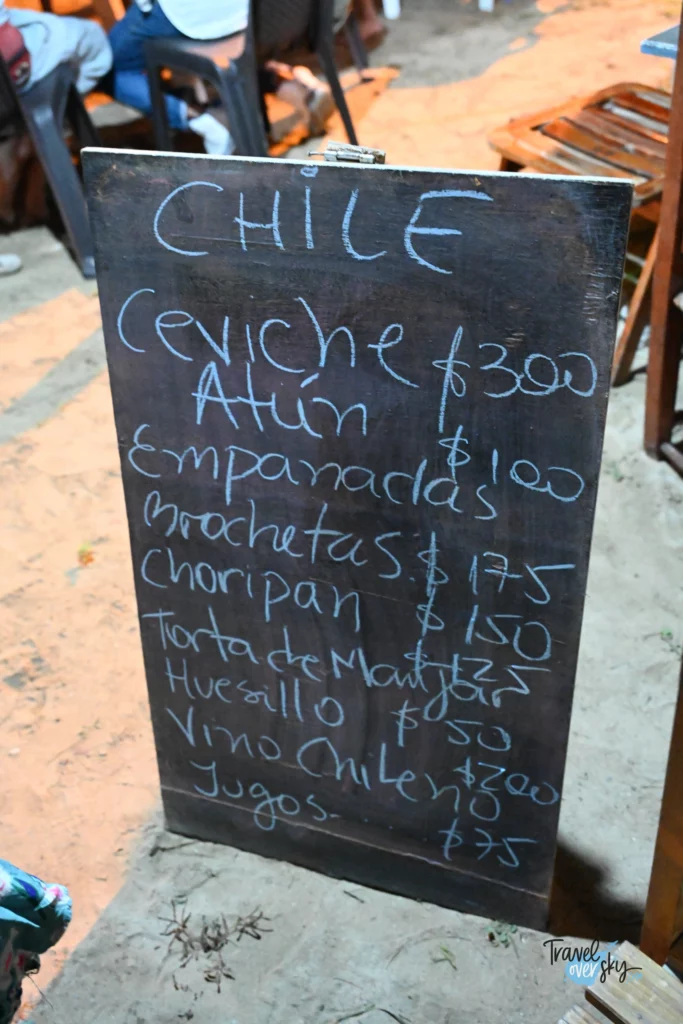 CHILE
Ceviche $300
Atún
Empanadas $100
Brochetas $175
Choripan $150
Torta de Manjar $125
Huesillo $50
Vino Chileno $200
Jugos $75
Travel
over sky